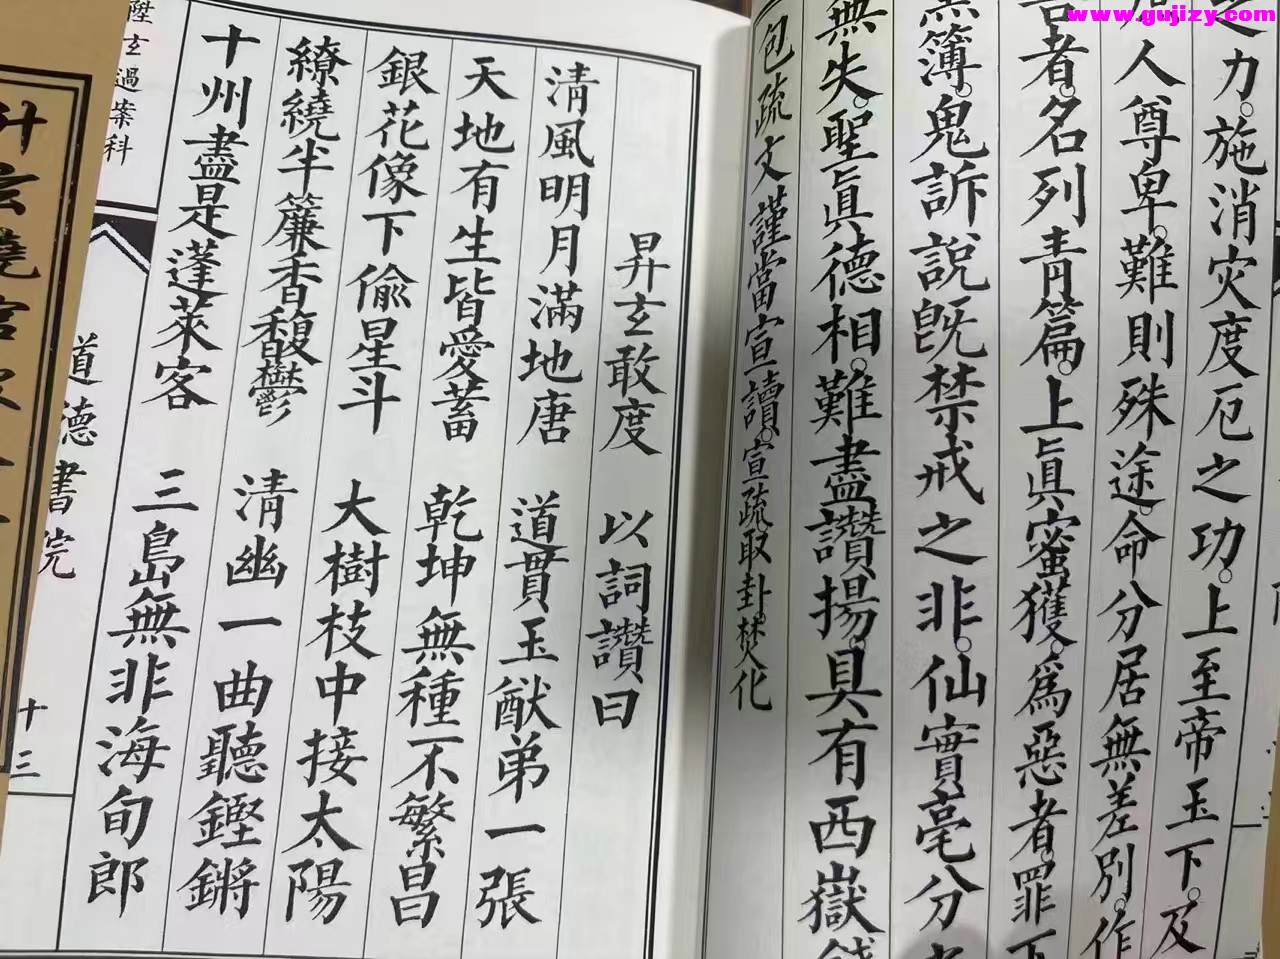 www.gujizy.com
之力。施消灾度厄之功。上至帝玉下。及
人尊卑。難則殊途。命分居無差別。作
者。名列青篇。上眞蜜獲。為惡者。罪下
黑簿。鬼訴說旣禁戒之非。仙實毫分
無失。聖眞德相。難盡讚揚。具有西嶽
包疏文謹當宣讀。宣疏取卦。焚化
昇玄敢度 以詞讚曰
清風明月滿地唐 道貫玉猷弟一張
天地有生皆愛蓄 乾坤無種不繁昌
銀花像下偷星斗 大樹枝中接太陽
繚繞半簾香馥鬱 清幽一曲聽鏗鏘
十州盡是蓬萊客 三島無非海旬郎
陞玄過案科
道德書院
十三
升玄